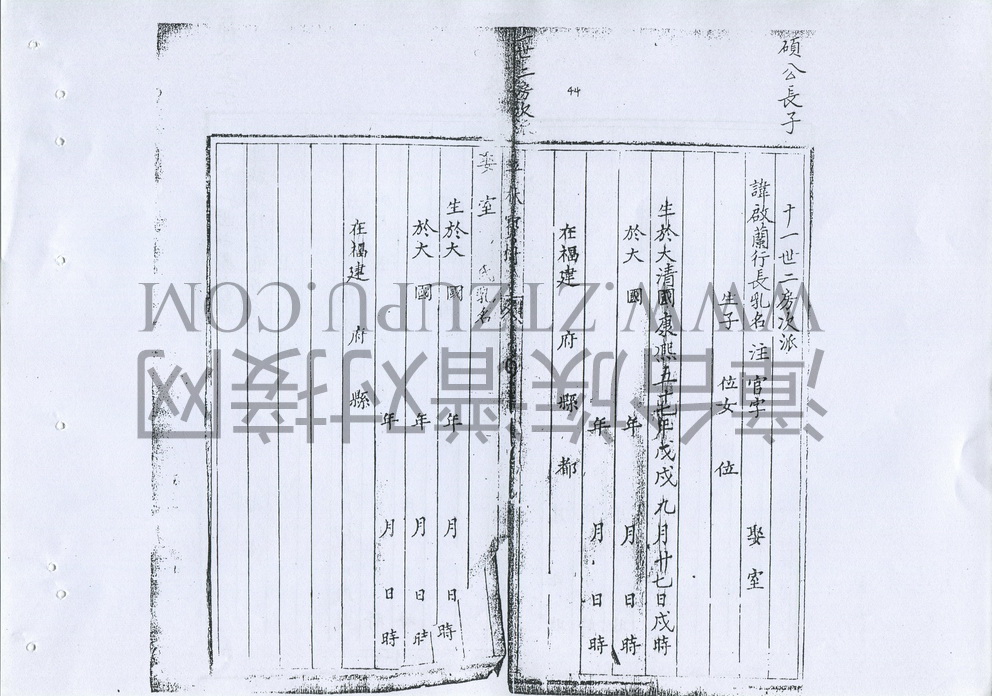 碩公長子
十一世二房次派
諱啟蘭行長乳名 注 官字 娶室
生子 位女 位
生於大清國康熙五十七年戊戌 九月廿七日戌時
於大 國 年 月 日 時
年 月 日 時
在福建 府 縣 都
44
世二房次派
娶室 氏乳名
生於大 國 年 月 日 時
於大 國 年 月 日 時
年 月 日 時
在福建 府 縣
WWW.ZTZUPU.COM
漳台族谱对接网